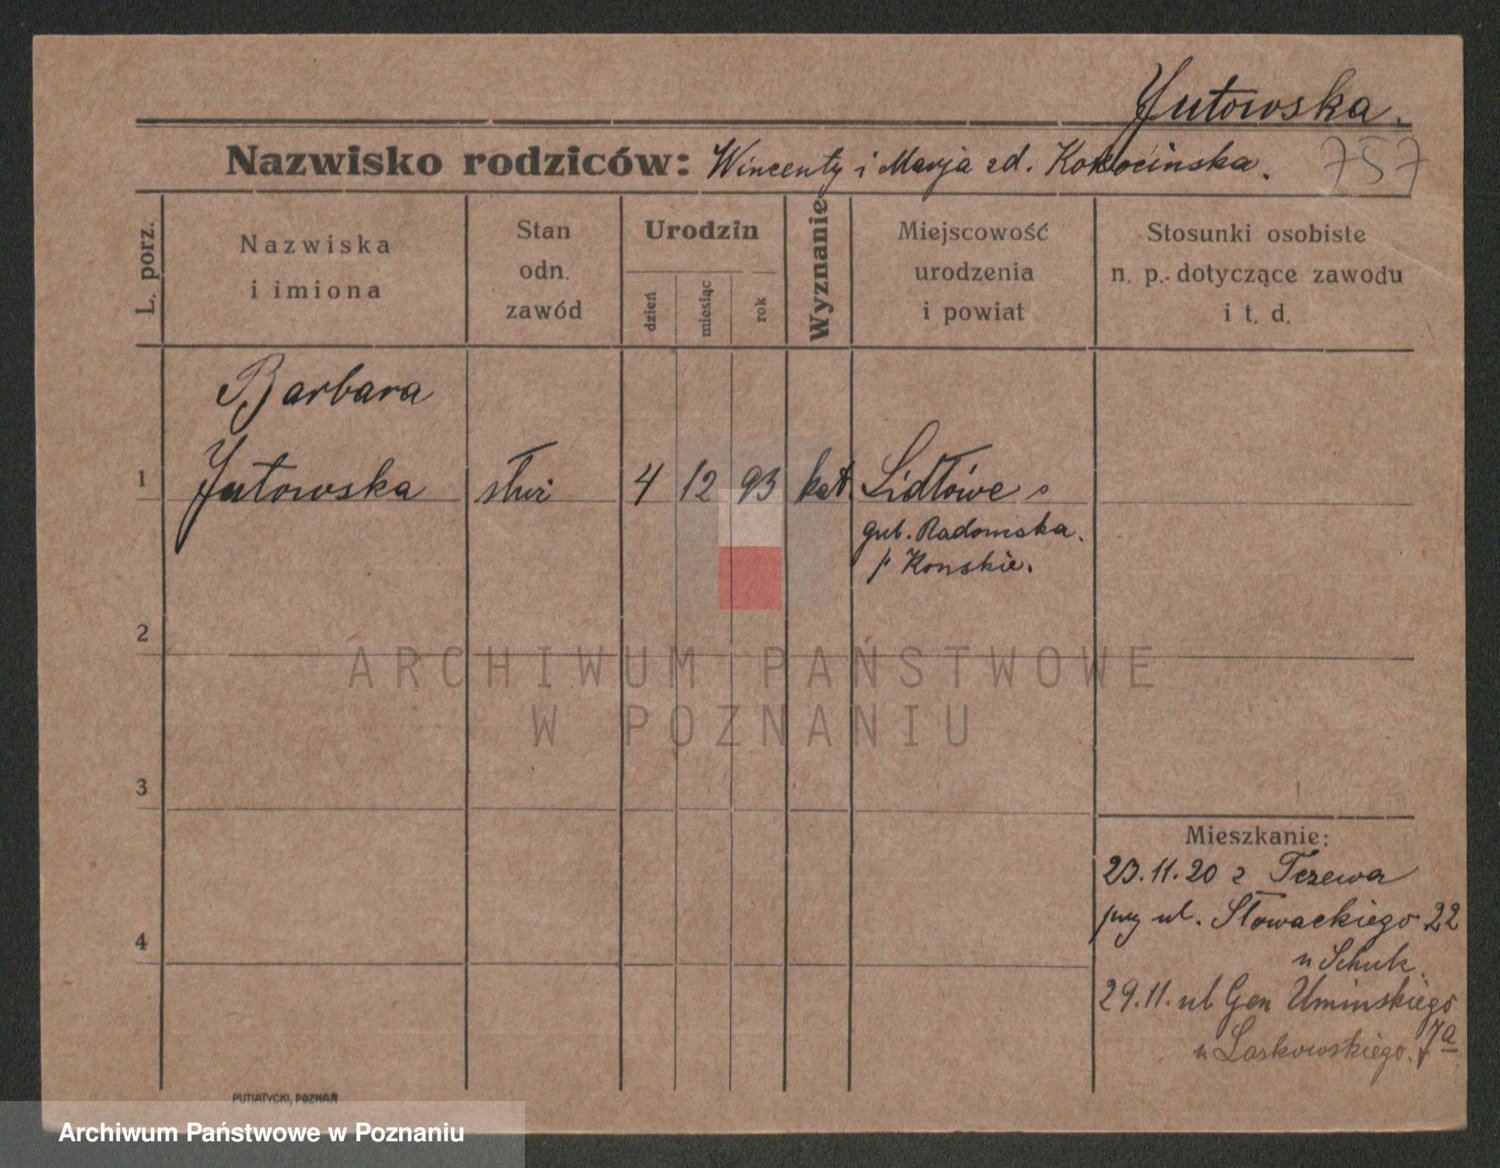 Jutowska.
Nazwisko rodziców: Wincenty i Marja zd. Kokocińska.
757
L. porz.
Nazwiska
i imiona
Stan
odn.
zawód
Urodzin
dzień
miesiąc
rok
Wyznanie
Miejscowość
urodzenia
i powiat
Stosunki osobiste
n. p. dotyczące zawodu
i t. d.
Barbara
1 Jutowska służ 4 12 93 kat. Lidłówe
gub. Radomska.
p Konskie.
2
ARCHIWUM PAŃSTWOWE
W POZNANIU
3
Mieszkanie:
23.11.20 z Tczewa
przy ul. Słowackiego 22
4
u Schuk.
29.11. ul Gen Uminskiego
7a
u Laskowskiego.
PUTIATYCKI, POZNAŃ
Archiwum Państwowe w Poznaniu